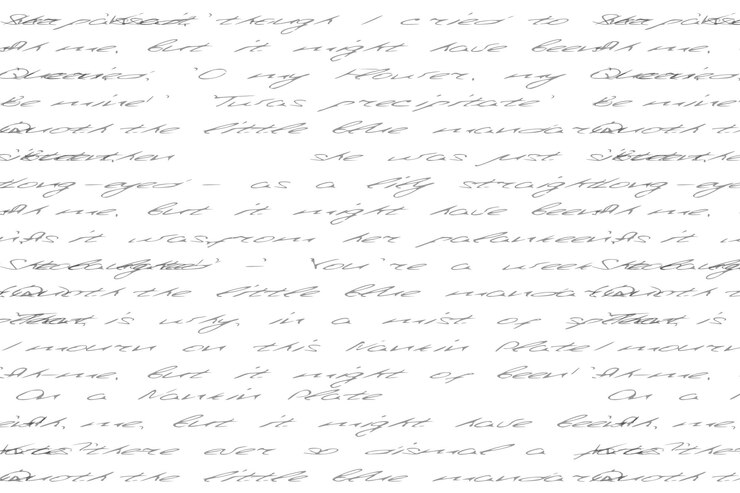 She paused, though I cried to She pause
Ah me, but it might have been Ah me,
Queenies, 'O my Flower, my Queenies,
Be mine! 'Twas precipitate' Be mine
Quoth the little blue mandar Quoth t
then she was just
Long-eyed — as a lily straight Long-eye
Ah me, but it might have been Ah me,
As it was from her palankeen As it w
She laughed — 'You're a week She laug
Quoth the little blue manda Quoth t
That is why, in a mist of sp That is
I mourn on this Nankin Plate I mour
Ah me, but it might of been! Ah me,
On a Nankin Plate On a
Ah, me, but it might have been Ah, me,
there ever so dismal a the
Quoth the little blue mandar Quoth t